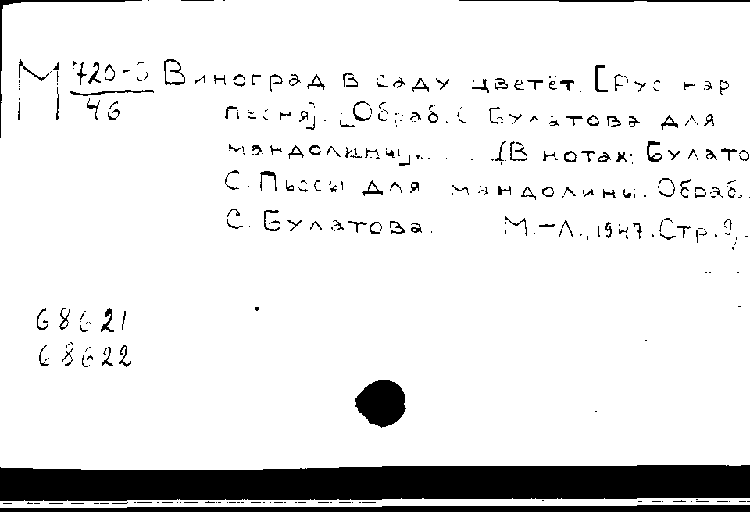 М 720-5 Виноград в саду цветёт. [Рус нар
46
песня]. [Обраб. С Булатова для
мандолины]... . (В нотах: Булато
С. Пьесы для мандолины. Обраб.
С. Булатова. М.-Л., 1947. Стр. 9,
68621
68622